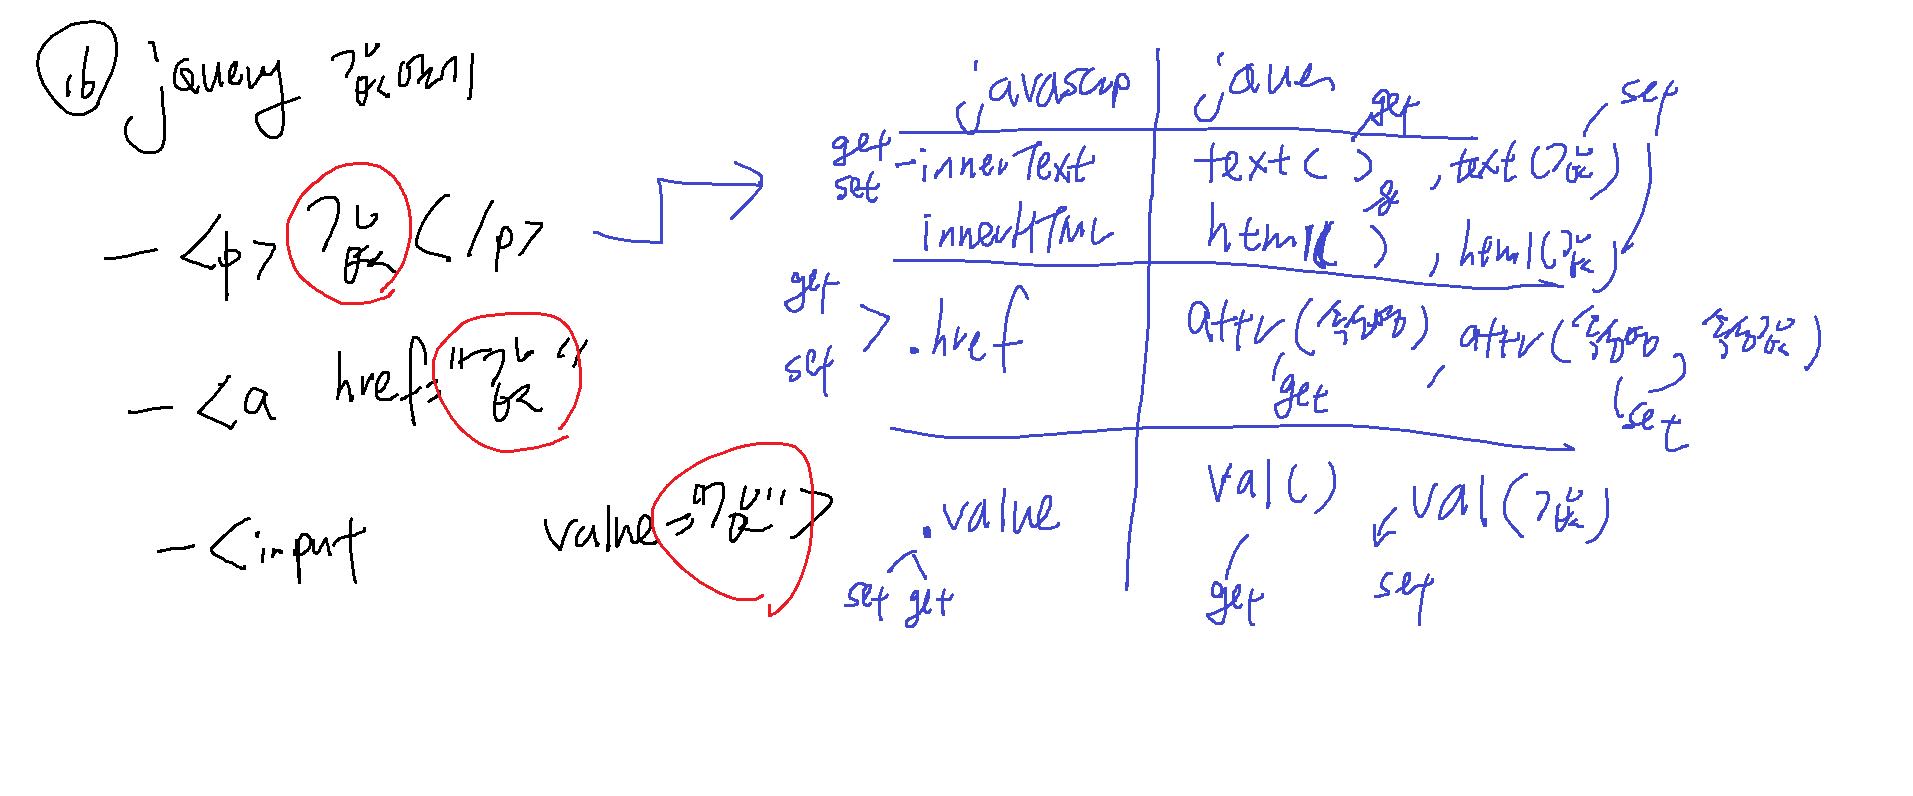 16 jquery 값얻기
- <p> 값 </p>
- <a href="값"
- <input value="값">
javascrip jquer
get set - innerText text() get , text(값) set
innerHTML html() g , html(값)
get set > .href attr(속성명) get , attr(속성명, 속성값) set
.value set get val() get val(값) set